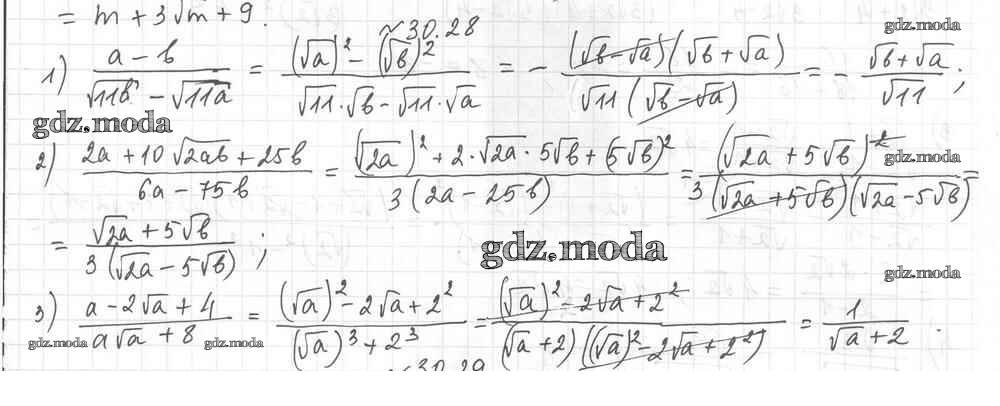 = m + 3√m + 9.
№ 30.28
gdz.moda
1) (a - b)/(√11b - √11a) = ((√a)² - (√b)²)/(√11·√b - √11·√a) = - ((√b - √a)(√b + √a))/(√11(√b - √a)) = - (√b + √a)/√11;
gdz.moda
gdz.moda
2) (2a + 10√2ab + 25b)/(6a - 75b) = ((√2a)² + 2·√2a·5√b + (5√b)²)/(3(2a - 25b)) = (√2a + 5√b)²/(3(√2a + 5√b)(√2a - 5√b)) =
gdz.moda
= (√2a + 5√b)/(3(√2a - 5√b));
gdz.moda
gdz.moda
3) (a - 2√a + 4)/(a√a + 8) = ((√a)² - 2√a + 2²)/((√a)³ + 2³) = ((√a)² - 2√a + 2²)/((√a + 2)((√a)² - 2√a + 2²)) = 1/(√a + 2).
gdz.moda gdz.moda gdz.moda
№ 30.29